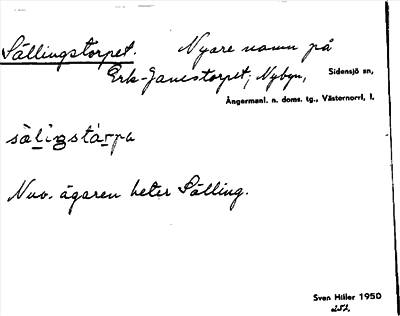 Sällingstorpet. Nyare namn på
Erk-Janestorpet, Nybyn, Sidensjö sn,
Ångermanl. n. doms. tg., Västernorrl, l.
sälingstårpa
Nuv. ägaren heter Sälling.
Sven Hiller 1950
252.